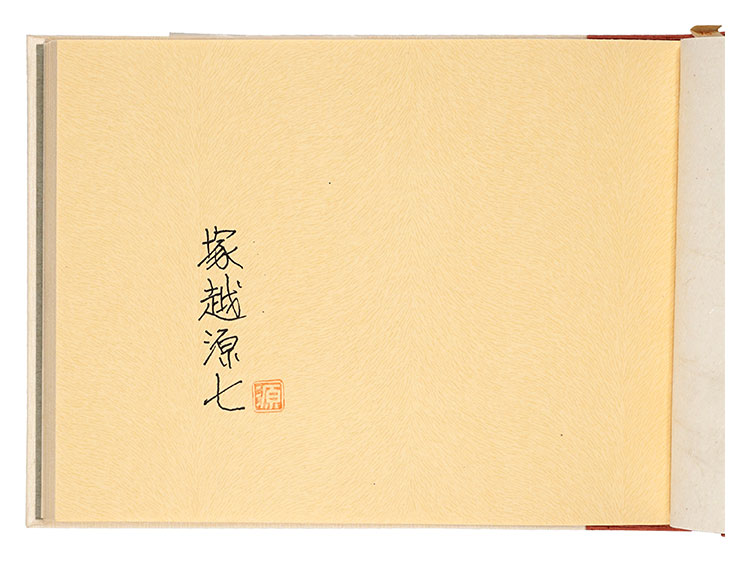 塚越源七
源